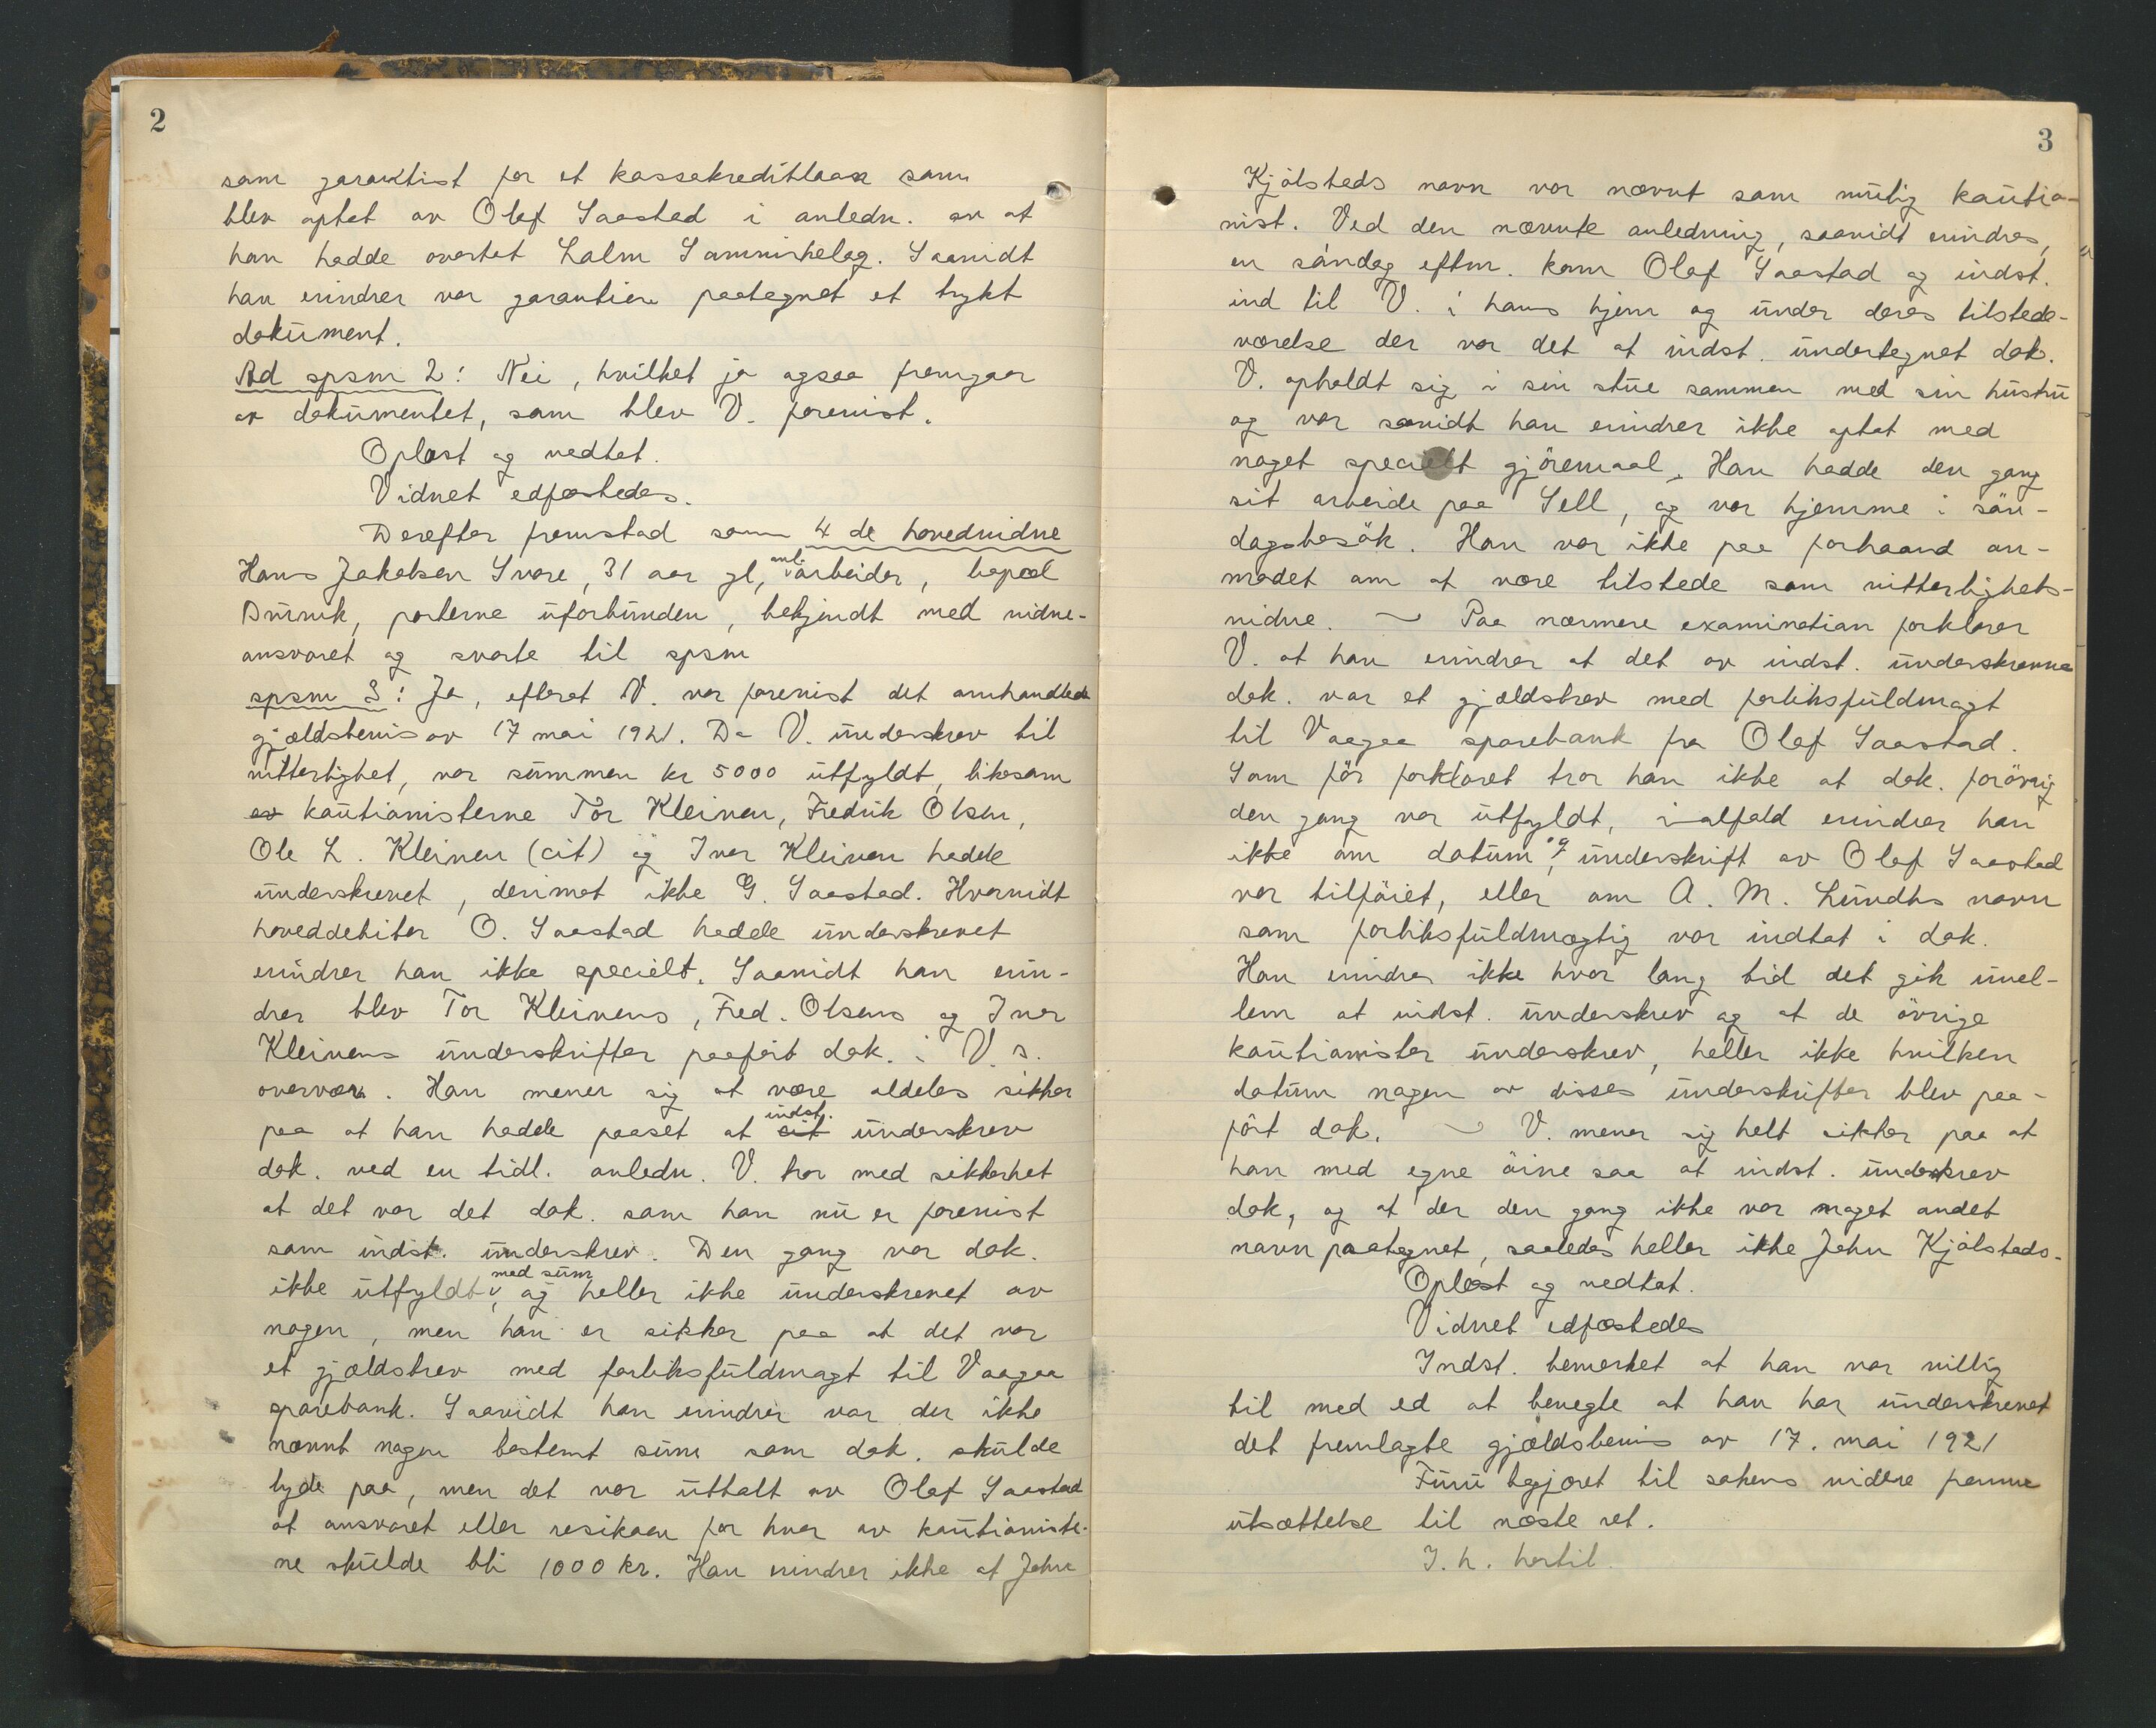 2
som garantist for et kassakreditlaan som
blev optat av Olaf Saastad i anledn. av at
han hadde overtat Lalm Samvirkelag. Saavidt
han erindrer var garantien paategnet et trykt
dokument.
Ad spsm 2: Nei, hvilket jo ogsaa fremgaar
av dokumentet, som blev V. forevist.
Oplæst og vedtat.
Vidnet edfæstedes.
Derefter fremstod som 4 de hovedvidne
Hans Jakobsen Svare, 31 aar gl, anl.arbeider, bopæl
, parterne uforbunden, bekjendt med vidne-
ansvaret og svarte til spsm
spsm 3: Ja, efterat V. var forevist det omhandlede
gjældsbevis av 17 mai 1921. Da V. underskrev til
vitterlighet, var summen kr 5000 utfyldt, likesom
av kautionisterne Tor Kleiven, Fredrik Olsen,
Ole L. Kleiven (cit) og Iver Kleiven hadde
underskrevet, derimot ikke G. Saastad. Hvorvidt
hoveddebitor O. Saastad hadde underskrevet
erindrer han ikke specielt. Saavidt han erin-
drer blev Tor Kleivens, Fred. Olsens og Iver
Kleivens underskrifter paaført dok. i V.s.
overvær. Han mener sig at være aldeles sikker
paa at han hadde paaset at cit indst. underskrev
dok. ved en tidl. anledn. V. tror med sikkerhet
at det var det dok. som han nu er forevist
som indst. underskrev. Den gang var dok.
ikke utfyldt med sum, og heller ikke underskrevet av
nogen, men han er sikker paa at det var
et gjældsbrev med forliksfuldmagt til Vaagaa
sparebank. Saavidt han erindrer var der ikke
nævnt nogen bestemt sum som dok. skulde
lyde paa, men det var uttalt av Olaf Saastad
at ansvaret eller resikoen for hver av kautioniste-
ne skulde bli 1000 kr. Han erindrer ikke at John
3
Kjølsteds navn var nævnt som mulig kautio-
nist. Ved den nævnte anledning, saavidt erindres,
en søndag eftm. kom Olaf Saastad og indst.
ind til V. i hans hjem og under deres tilstede-
værelse der var det at indst. undertegnet dok.
V. opholdt sig i sin stue sammen med sin hustru
og var saavidt han erindrer ikke optat med
noget specielt gjøremaal. Han hadde den gang
sit arbeide paa Sell, og var hjemme i søn-
dagsbesøk. Han var ikke paa forhaand an-
modet om at være tilstede som vitterlighets-
vidne. ~ Paa nærmere examination forklarer
V. at han erindrer at det av indst. underskrevne
dok. var et gjældsbrev med forliksfuldmagt
til Vaagaa sparebank fra Olaf Saastad.
Som før forklaret tror han ikke at dok. forøvrig
den gang var utfyldt, ialfald erindrer han
ikke om datum og underskrift av Olaf Saastad
var tilføiet, eller om A. M. Lundhs navn
som forliksfuldmægtig var indtat i dok.
Han erindrer ikke hvor lang tid det gik imel-
lem at indst. underskrev og at de øvrige
kautionister underskrev, heller ikke hvilken
datum nogen av disses underskrifter blev paa-
ført dok. ~ V. mener sig helt sikker paa at
han med egne øine saa at indst. underskrev
dok, og at der den gang ikke var noget andet
navn paategnet, saaledes heller ikke John Kjølsteds.
Oplæst og vedtat.
Vidnet edfæstedes
Indst. bemerket at han var villig
til med ed at benegte at han har underskrevet
det fremlagte gjældsbevis av 17. mai 1921
til sakens videre fremme
utsættelse til næste ret.
I. h. hertil.